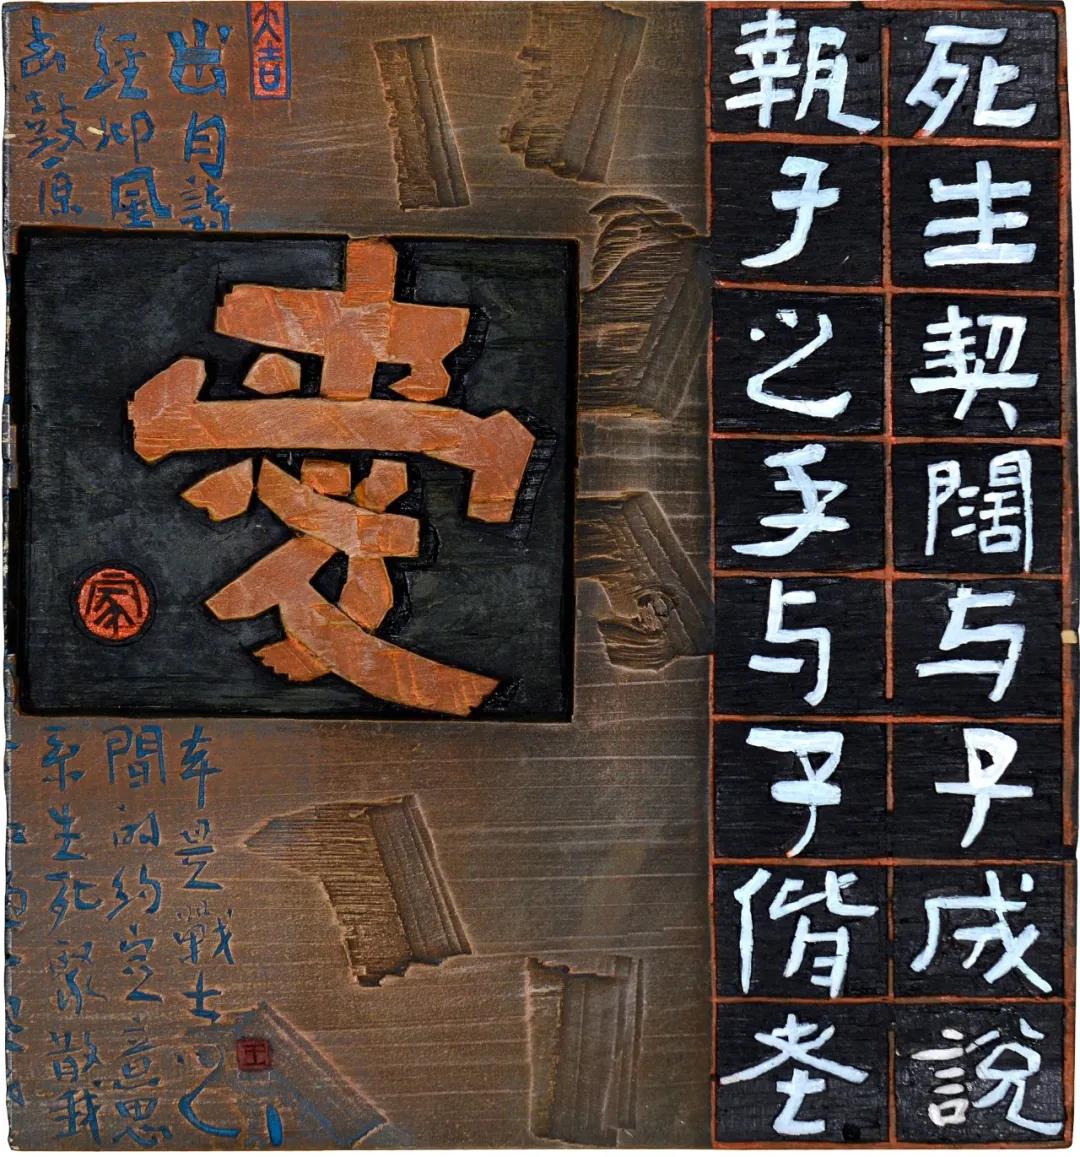 死生契闊与子成說
執子之手与子偕老
大吉
出自詩
經邶風
击鼓原
愛
家
本是戰士之
間的約定意思
系生死聚散我
王